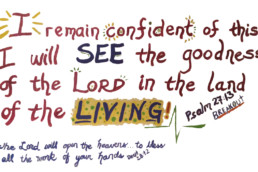 I remain confident of this
I will SEE the goodness
of the LORD in the land
of the LIVING!
Psalm 27:13
BREAKOUT
the Lord will open the heavens... to bless
all the work of your hands